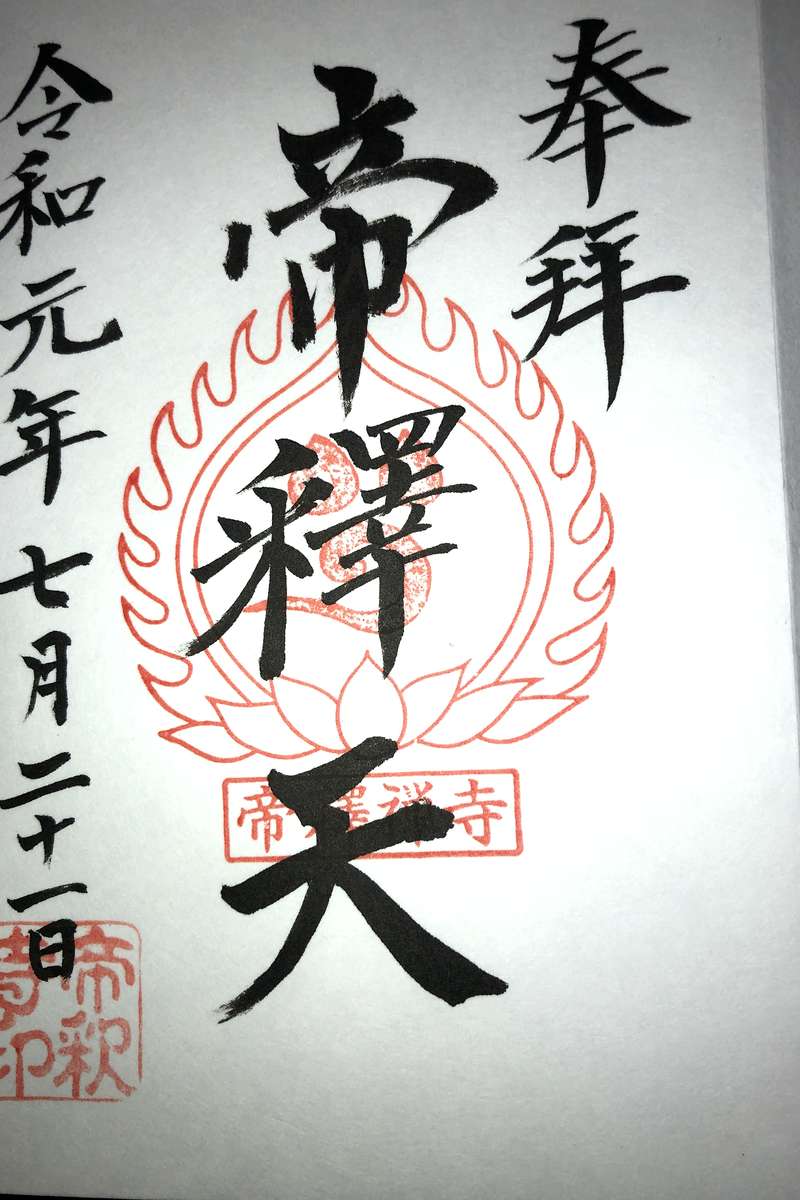 奉拝
帝釋天
帝釋禅寺
令和元年七月二十一日
帝釈
寺印